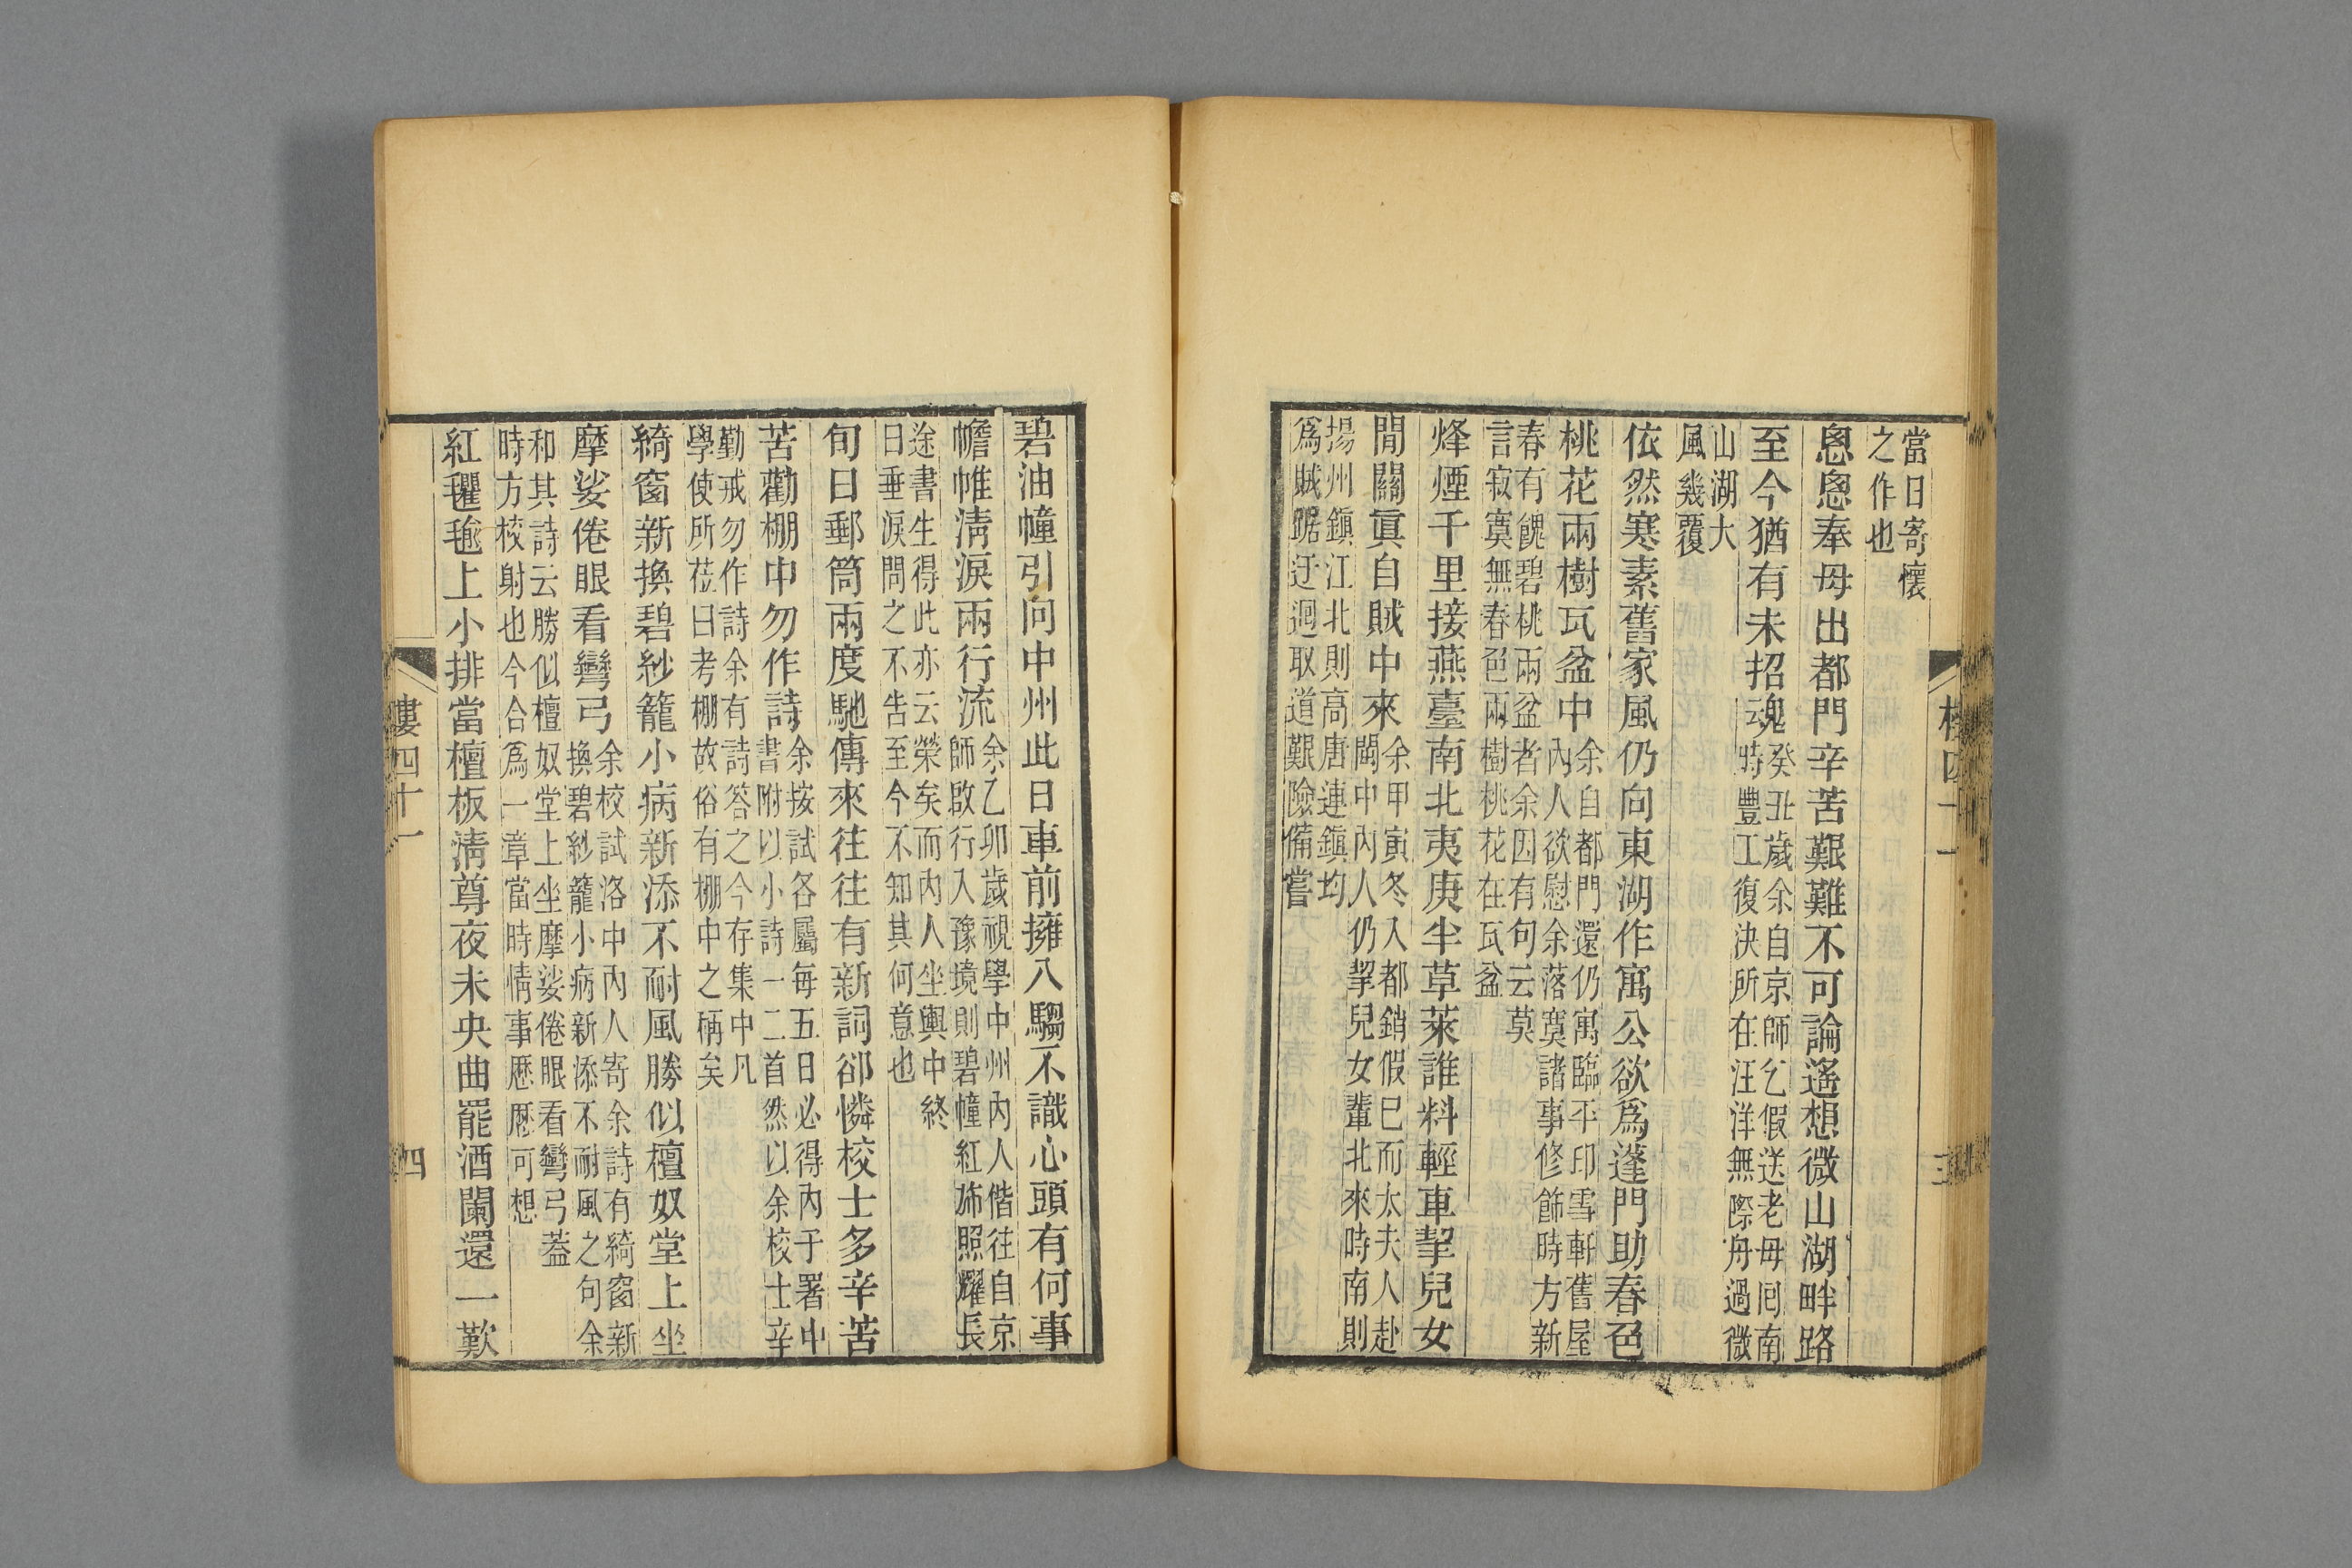 當日寄懷
之作也
悤悤奉母出都門辛苦艱難不可論遙想微山湖畔路
至今猶有未招魂
癸丑歲余自京師乞假送老母囘南
時豐工復決所在汪洋無際舟過微
山湖大
風幾覆
依然寒素舊家風仍向東湖作寓公欲爲蓬門助春色
桃花兩樹瓦盆中
余自都門還仍寓臨平印雪軒舊屋
內人欲慰余落寞諸事修飾時方新
春有餽碧桃兩盆者余因有句云莫
言寂寞無春色兩樹桃花在瓦盆
烽煙千里接燕臺南北夷庚半草萊誰料輕車挈兒女
間關眞自賊中來
余甲寅冬入都銷假巳而太夫人赴
閩中內人仍挈兒女輩北來時南則
揚州鎭江北則高唐連鎭均
爲賊踞迂迴取道艱險備嘗
碧油幢引向中州此日車前擁八騶不識心頭有何事
幨帷淸淚兩行流
余乙卯歲視學中州內人偕往自京
師啟行入豫境則碧幢紅斾照耀長
途書生得此亦云榮矣而內人坐輿中終
日垂淚問之不吿至今不知其何意也
旬日郵筒兩度馳傳來往往有新詞卻憐校士多辛苦
苦勸棚中勿作詩
余按試各屬每五日必得內子署中
書附以小詩一二首然以余校士辛
勤戒勿作詩余有詩答之今存集中凡
學使所莅曰考棚故俗有棚中之稱矣
綺窗新換碧紗籠小病新添不耐風勝似檀奴堂上坐
摩娑倦眼看彎弓
余校試洛中內人寄余詩有綺窗新
換碧紗籠小病新添不耐風之句余
和其詩云勝似檀奴堂上坐摩娑倦眼看彎弓蓋
時方校射也今合爲一章當時情事歷歷可想
紅氍毹上小排當檀板淸尊夜未央曲罷酒闌還一歎
婁四十一
四